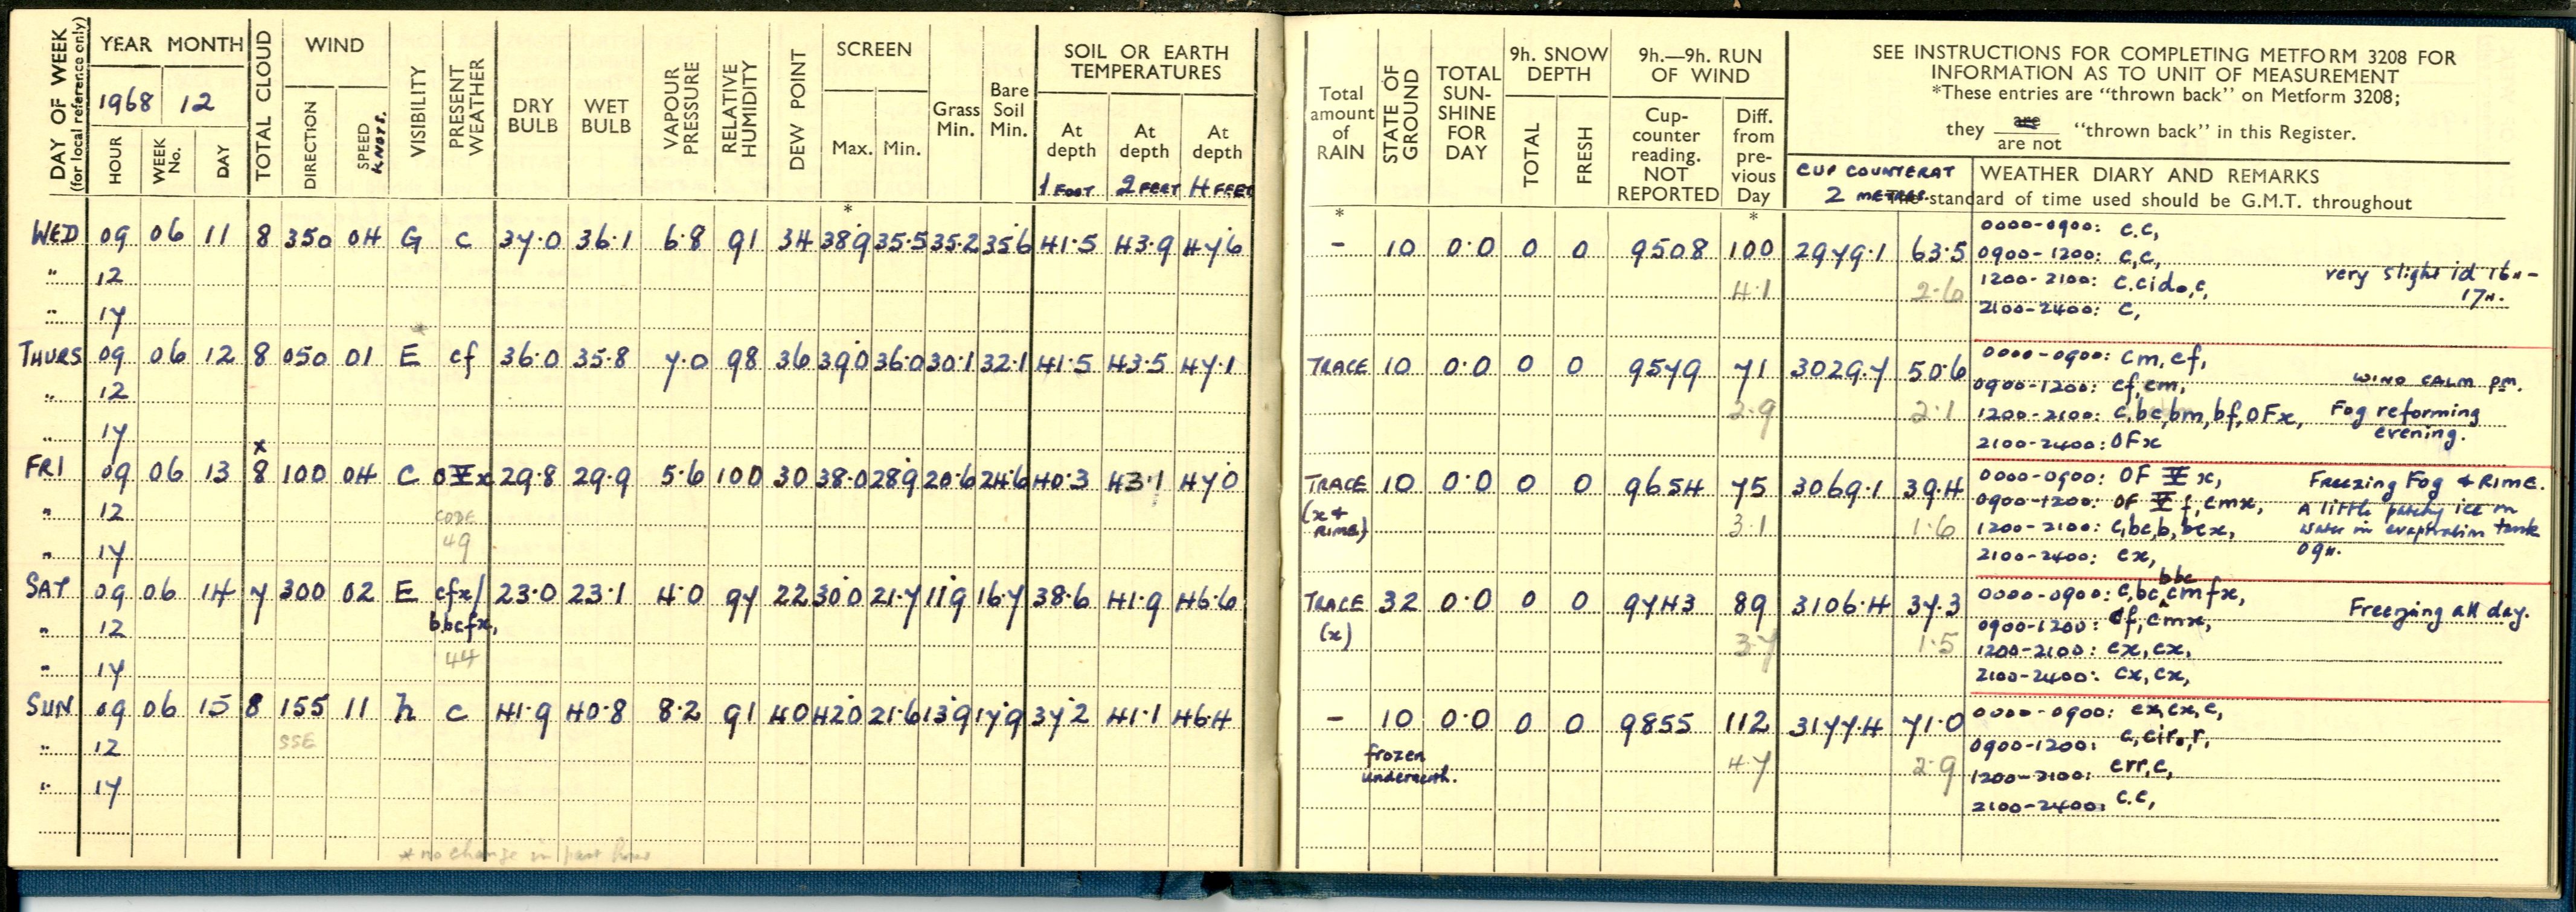 DAY OF WEEK (for local reference only)
YEAR MONTH
1968 12
HOUR WEEK No. DAY
TOTAL CLOUD
WIND
DIRECTION SPEED KNOTS.
VISIBILITY
PRESENT WEATHER
DRY BULB
WET BULB
VAPOUR PRESSURE
RELATIVE HUMIDITY
DEW POINT
SCREEN
Max. Min.
Grass Min.
Bare Soil Min.
SOIL OR EARTH TEMPERATURES
At depth At depth At depth
1 FOOT 2 FEET 4 FEET
*
WED 09 06 11 8 350 04 G c 37.0 36.1 6.8 91 34 38.9 35.5 35.2 35.6 41.5 43.9 47.6
" 12
" 17
THURS 09 06 12 8 050 01 E cf 36.0 35.8 7.0 98 36 39.0 36.0 30.1 32.1 41.5 43.5 47.1
" 12
" 17
x
FRI 09 06 13 8 100 04 C 29.8 29.9 5.6 100 30 38.0 28.9 20.6 24.6 40.3 43.1 47.0
" 12 CODE
" 17 49
SAT 09 06 14 7 300 02 E cfx/ 23.0 23.1 4.0 97 22 30.0 21.7 11.9 16.7 38.6 41.9 46.6
" 12 bbcfx,
" 17 44
SUN 09 06 15 8 155 11 h c 41.9 40.8 8.2 91 40 42.0 21.6 13.9 17.9 37.2 41.1 46.4
" 12 SSE
" 17
* no change in past hour
Total amount of RAIN
STATE OF GROUND
TOTAL SUN-SHINE FOR DAY
9h. SNOW DEPTH
TOTAL FRESH
9h.—9h. RUN OF WIND
Cup-counter reading. NOT REPORTED
Diff. from pre-vious Day
SEE INSTRUCTIONS FOR COMPLETING METFORM 3208 FOR
INFORMATION AS TO UNIT OF MEASUREMENT
*These entries are "thrown back" on Metform 3208;
they are / are not "thrown back" in this Register.
CUP COUNTER AT 2 METRES.
WEATHER DIARY AND REMARKS
standard of time used should be G.M.T. throughout
* *
- 10 0.0 0 0 9508 100 2979.1 63.5
4.1 2.6
0000-0900: c.c,
0900-1200: c,c,
1200-2100: c.cido,c,
2100-2400: c,
very slight id 16H-
17H.
TRACE 10 0.0 0 0 9579 71 3029.7 50.6
2.9 2.1
0000-0900: cm,cf,
0900-1200: cf,cm,
1200-2100: c,bc,bm,bf,OFx,
2100-2400: OFx
WIND CALM pm.
Fog reforming
evening.
TRACE 10 0.0 0 0 9654 75 3069.1 39.4
(x + RIME) 3.1 1.6
0000-0900: OF x,
0900-1200: OF f,cmx,
1200-2100: c,bc,b,bcx,
2100-2400: cx,
Freezing Fog + RIME.
A little patchy ice on
water in evaporation tank
09H.
TRACE 32 0.0 0 0 9743 89 3106.4 37.3
(x) 3.7 1.5
bbc
0000-0900: c,bc,cmfx,
0900-1200: cf,cmx,
1200-2100: cx,cx,
2100-2400: cx,cx,
Freezing all day.
- 10 0.0 0 0 9855 112 3177.4 71.0
frozen underneath.
4.7 2.9
0000-0900: cx,cx,c,
0900-1200: c,ciro,r,
1200-2100: crr,c,
2100-2400: c.c,